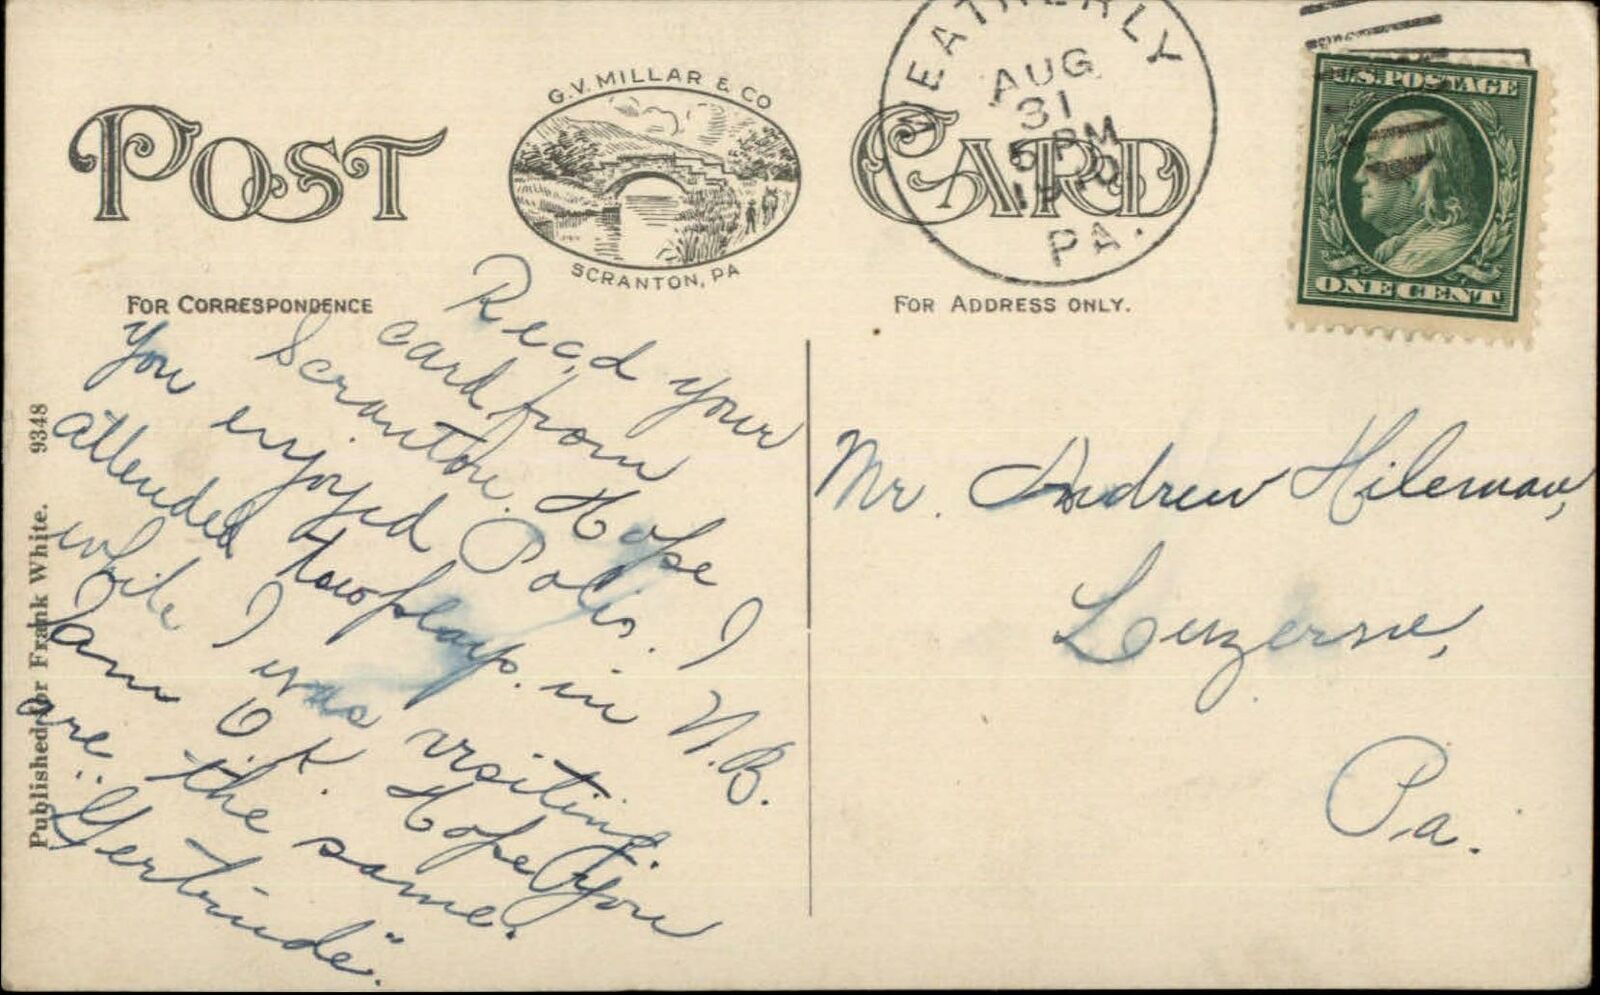 POST CARD
G.V. MILLAR & CO
SCRANTON, PA
WEATHERLY
AUG
31
5 PM
1910
PA.
U.S. POSTAGE
ONE CENT
FOR CORRESPONDENCE
FOR ADDRESS ONLY.
Read your
card from
Scranton. Hope
you enjoyed Polis. I
attended two plays in N.B.
while I was visiting.
I am O.K. Hope you
are the same.
"Gertrude".
Mr. Andrew Hileman,
Luzerne,
Pa.
Published for Frank White. 9348